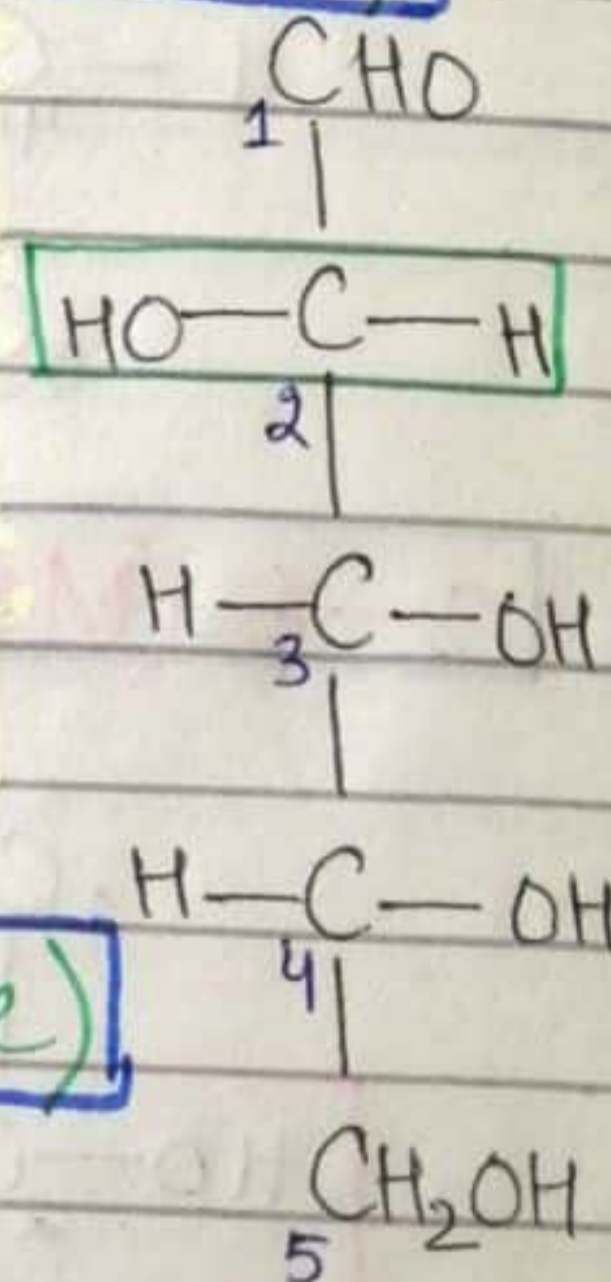 CHO
1
HO—C—H
2
H—C—OH
3
H—C—OH
4
e)
CH₂OH
5